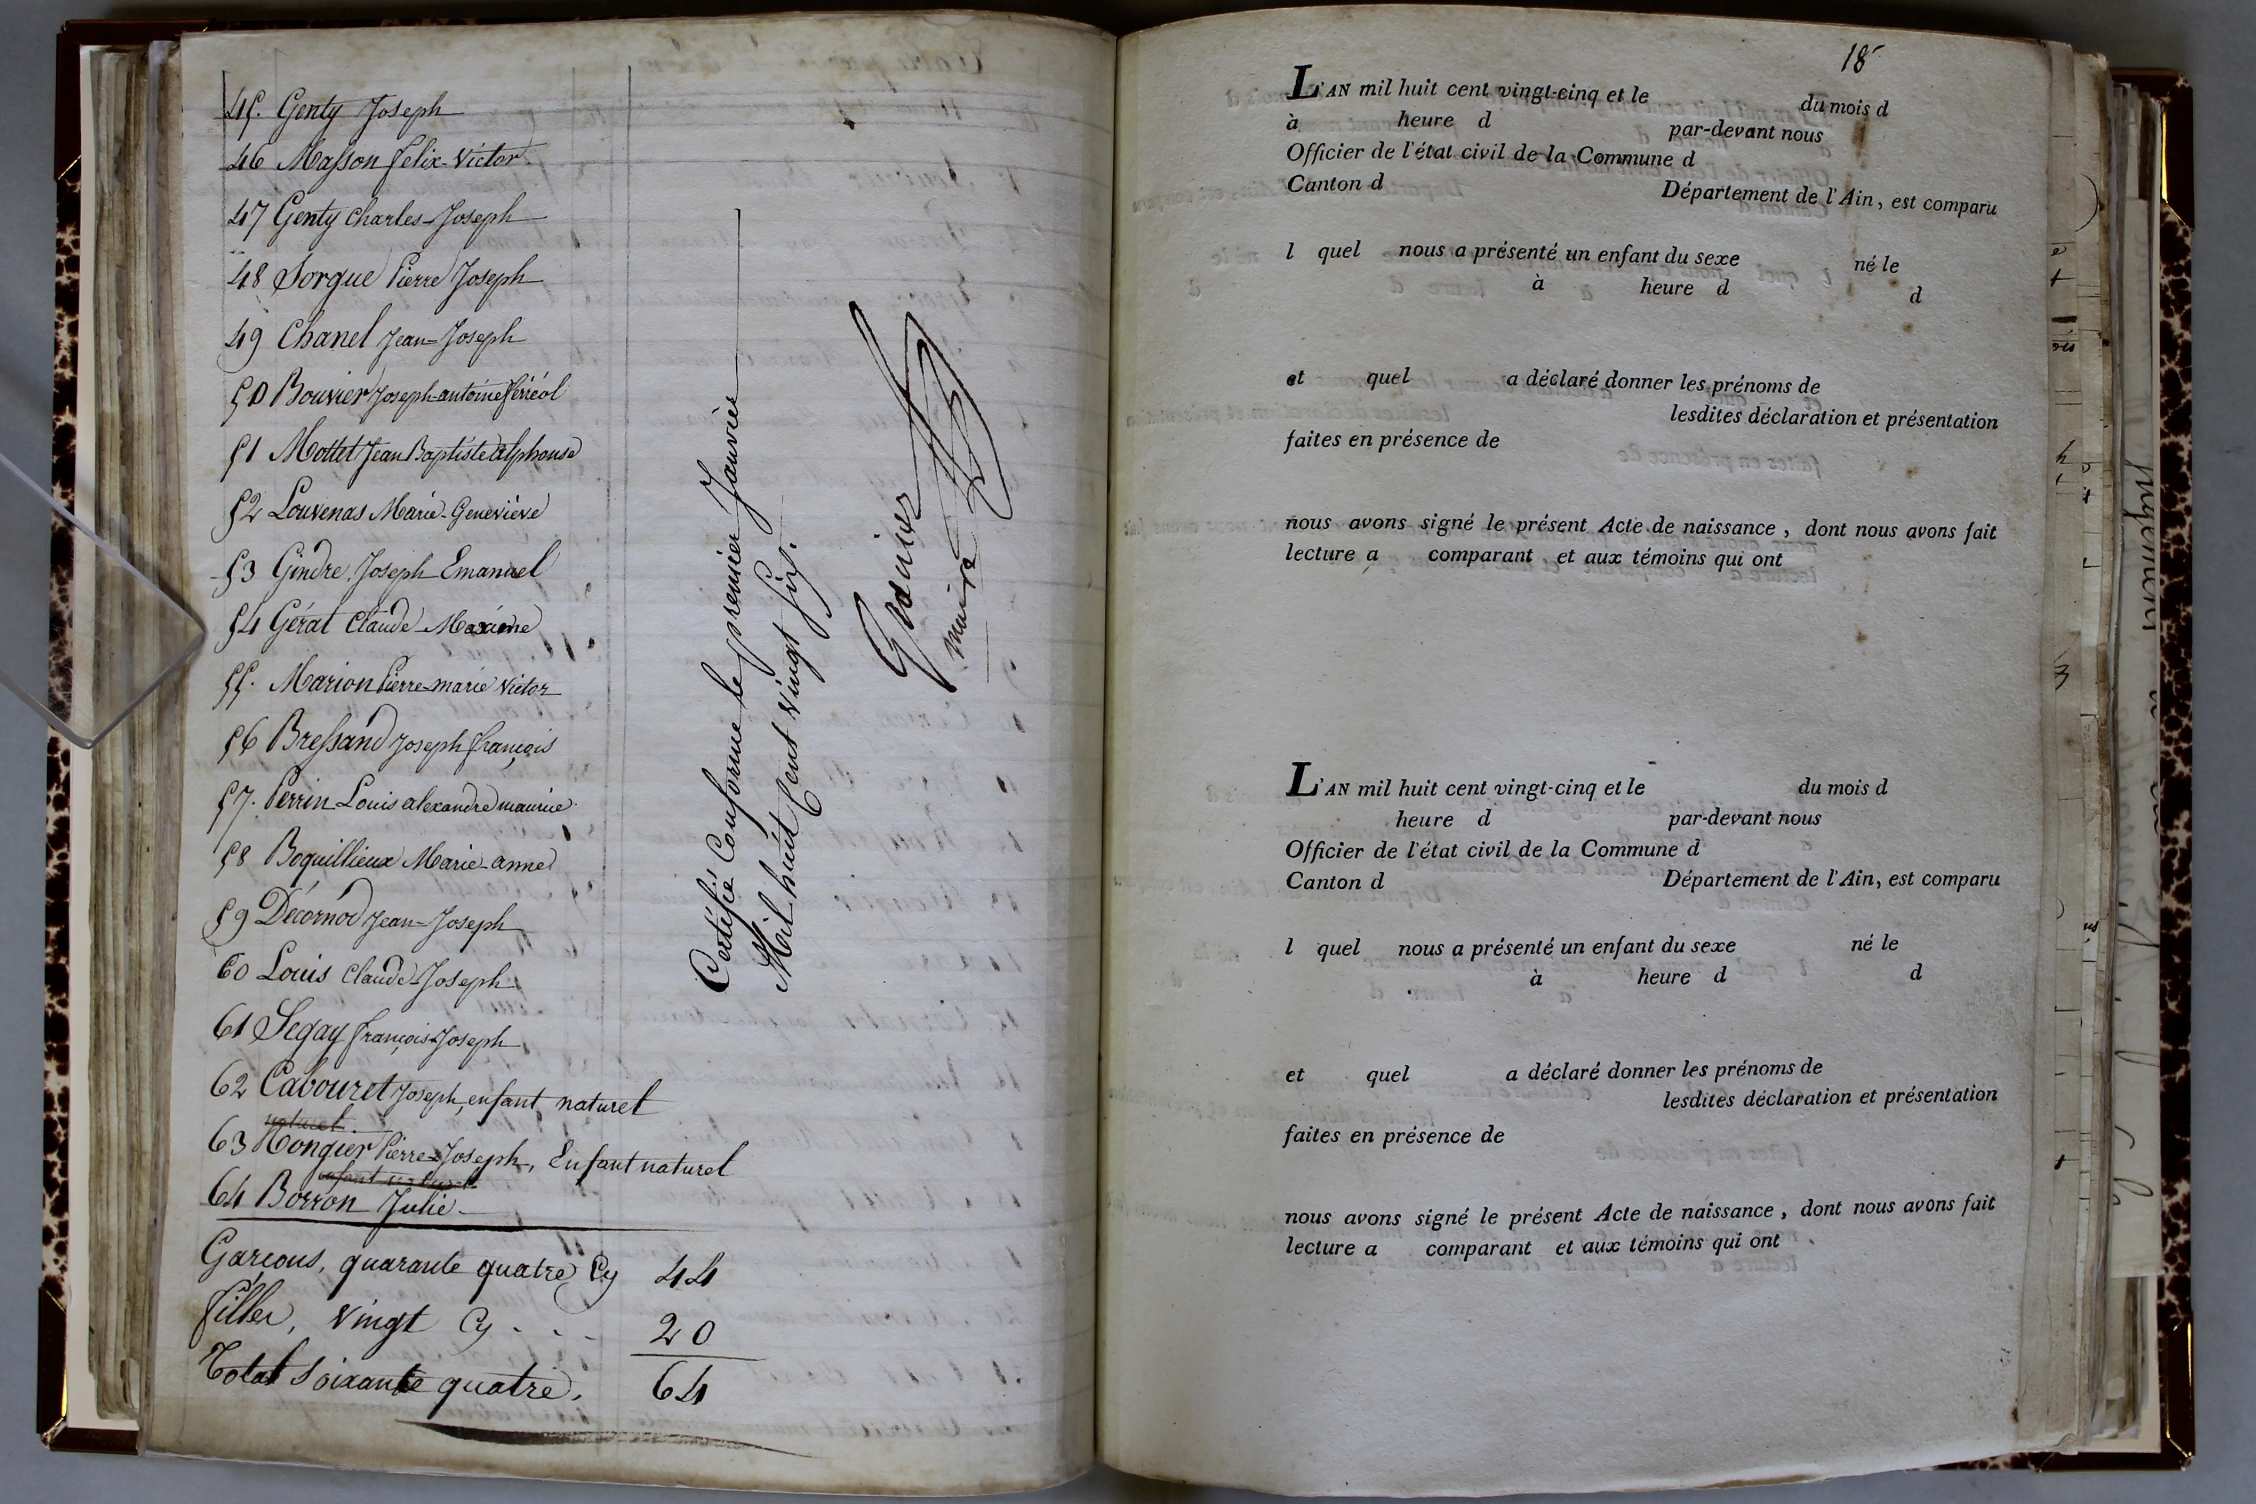 45. Genty Joseph
46 Masson felix-Victor.
47 Genty Charles-Joseph
48 Sorgue Pierre Joseph
49 Chanel Jean-Joseph
50 Bouvier Joseph-antoine ferréol
51 Mottet Jean Baptiste alphonse
52 Louvenas Marie-Geneviève
53 Gindre Joseph Emanuel
54 Gérat Claude-Maxime
55. Marion Pierre-marie victor
56 Bressand Joseph françois
57. Perrin Louis alexandre maurice
58 Boquillieux Marie-anne
59 Décornod Jean-Joseph
60 Louis Claude-Joseph
61 Segay françois-Joseph
62 Cabouret Joseph, enfant naturel
naturel
63 Rongier Pierre-Joseph, Enfant naturel
enfant naturel
64 Borron Julie
Garcons, quarante quatre Cy 44
filles, vingt Cy - - - 20
Total soixante quatre, 64
Certifié Conforme le premier Janvier
Mil huit Cent vingt six.
maire
18
L'AN mil huit cent vingt-cinq et le du mois d
à heure d par-devant nous
Officier de l'état civil de la Commune d
Canton d Département de l'Ain, est comparu
l quel nous a présenté un enfant du sexe né le
à heure d d
et quel a déclaré donner les prénoms de
lesdites déclaration et présentation
faites en présence de
nous avons signé le présent Acte de naissance, dont nous avons fait
lecture a comparant et aux témoins qui ont
L'AN mil huit cent vingt-cinq et le du mois d
heure d par-devant nous
Officier de l'état civil de la Commune d
Canton d Département de l'Ain, est comparu
l quel nous a présenté un enfant du sexe né le
à heure d d
et quel a déclaré donner les prénoms de
lesdites déclaration et présentation
faites en présence de
nous avons signé le présent Acte de naissance, dont nous avons fait
lecture a comparant et aux témoins qui ont